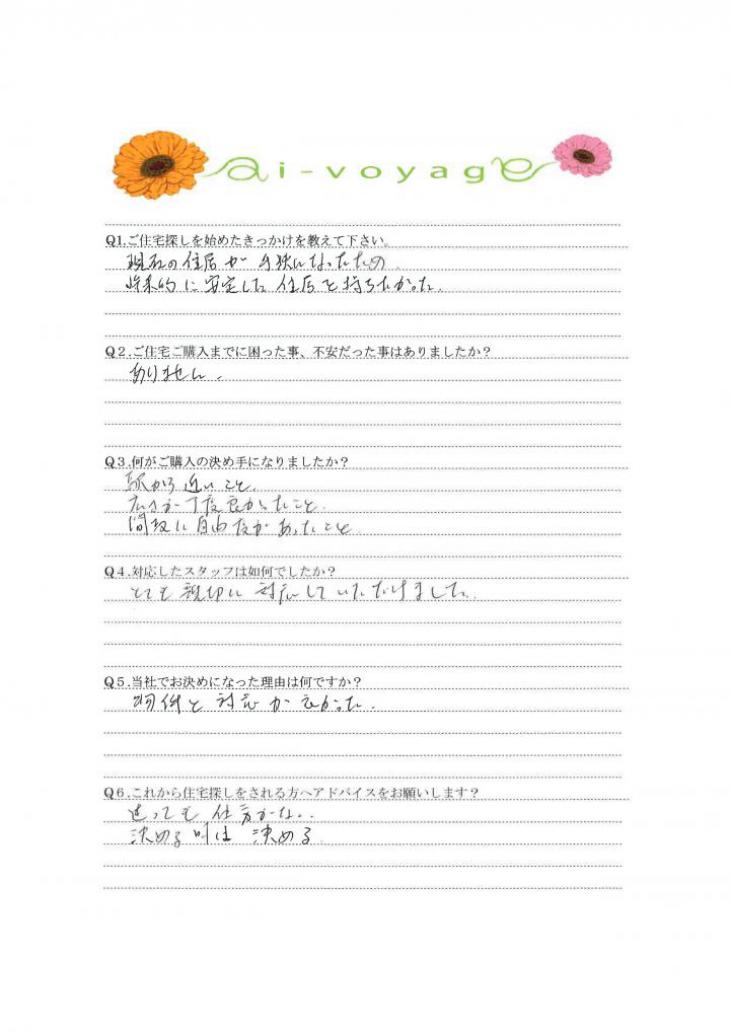 ai-voyage
Q1.ご住宅探しを始めたきっかけを教えて下さい。
現在の住居が手狭になったため
将来的に安定した住居を持ちたかった.
Q2.ご住宅ご購入までに困った事、不安だった事はありましたか？
ありません.
Q3.何がご購入の決め手になりましたか？
駅から近いこと.
広さが丁度良かったこと.
間取に自由度があったこと
Q4.対応したスタッフは如何でしたか？
とても親切に対応していただけました.
Q5.当社でお決めになった理由は何ですか？
物件と対応が良かった.
Q6.これから住宅探しをされる方へアドバイスをお願いします？
迷っても仕方がない.
決める時は決める.